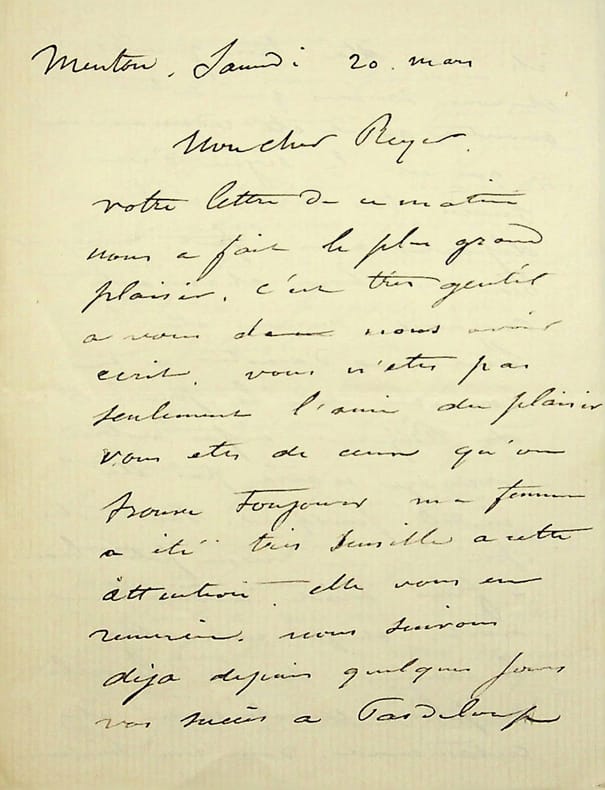 Menton, Samedi 20 mars
Mon cher Reyer.
votre lettre de ce matin
nous a fait le plus grand
plaisir, c'est très gentil
a vous de nous avoir
écrit, vous n'etes pas
seulement l'ami du plaisir
vous etes de ceux qu'on
trouve toujours ma femme
a été très sensible a cette
attention elle vous en
remercie. nous suivons
déja depuis quelques jours
vos succès a Pasdeloup